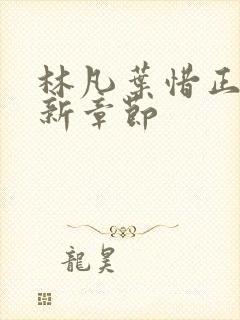 林凡葉惜正
新章節
龍昊